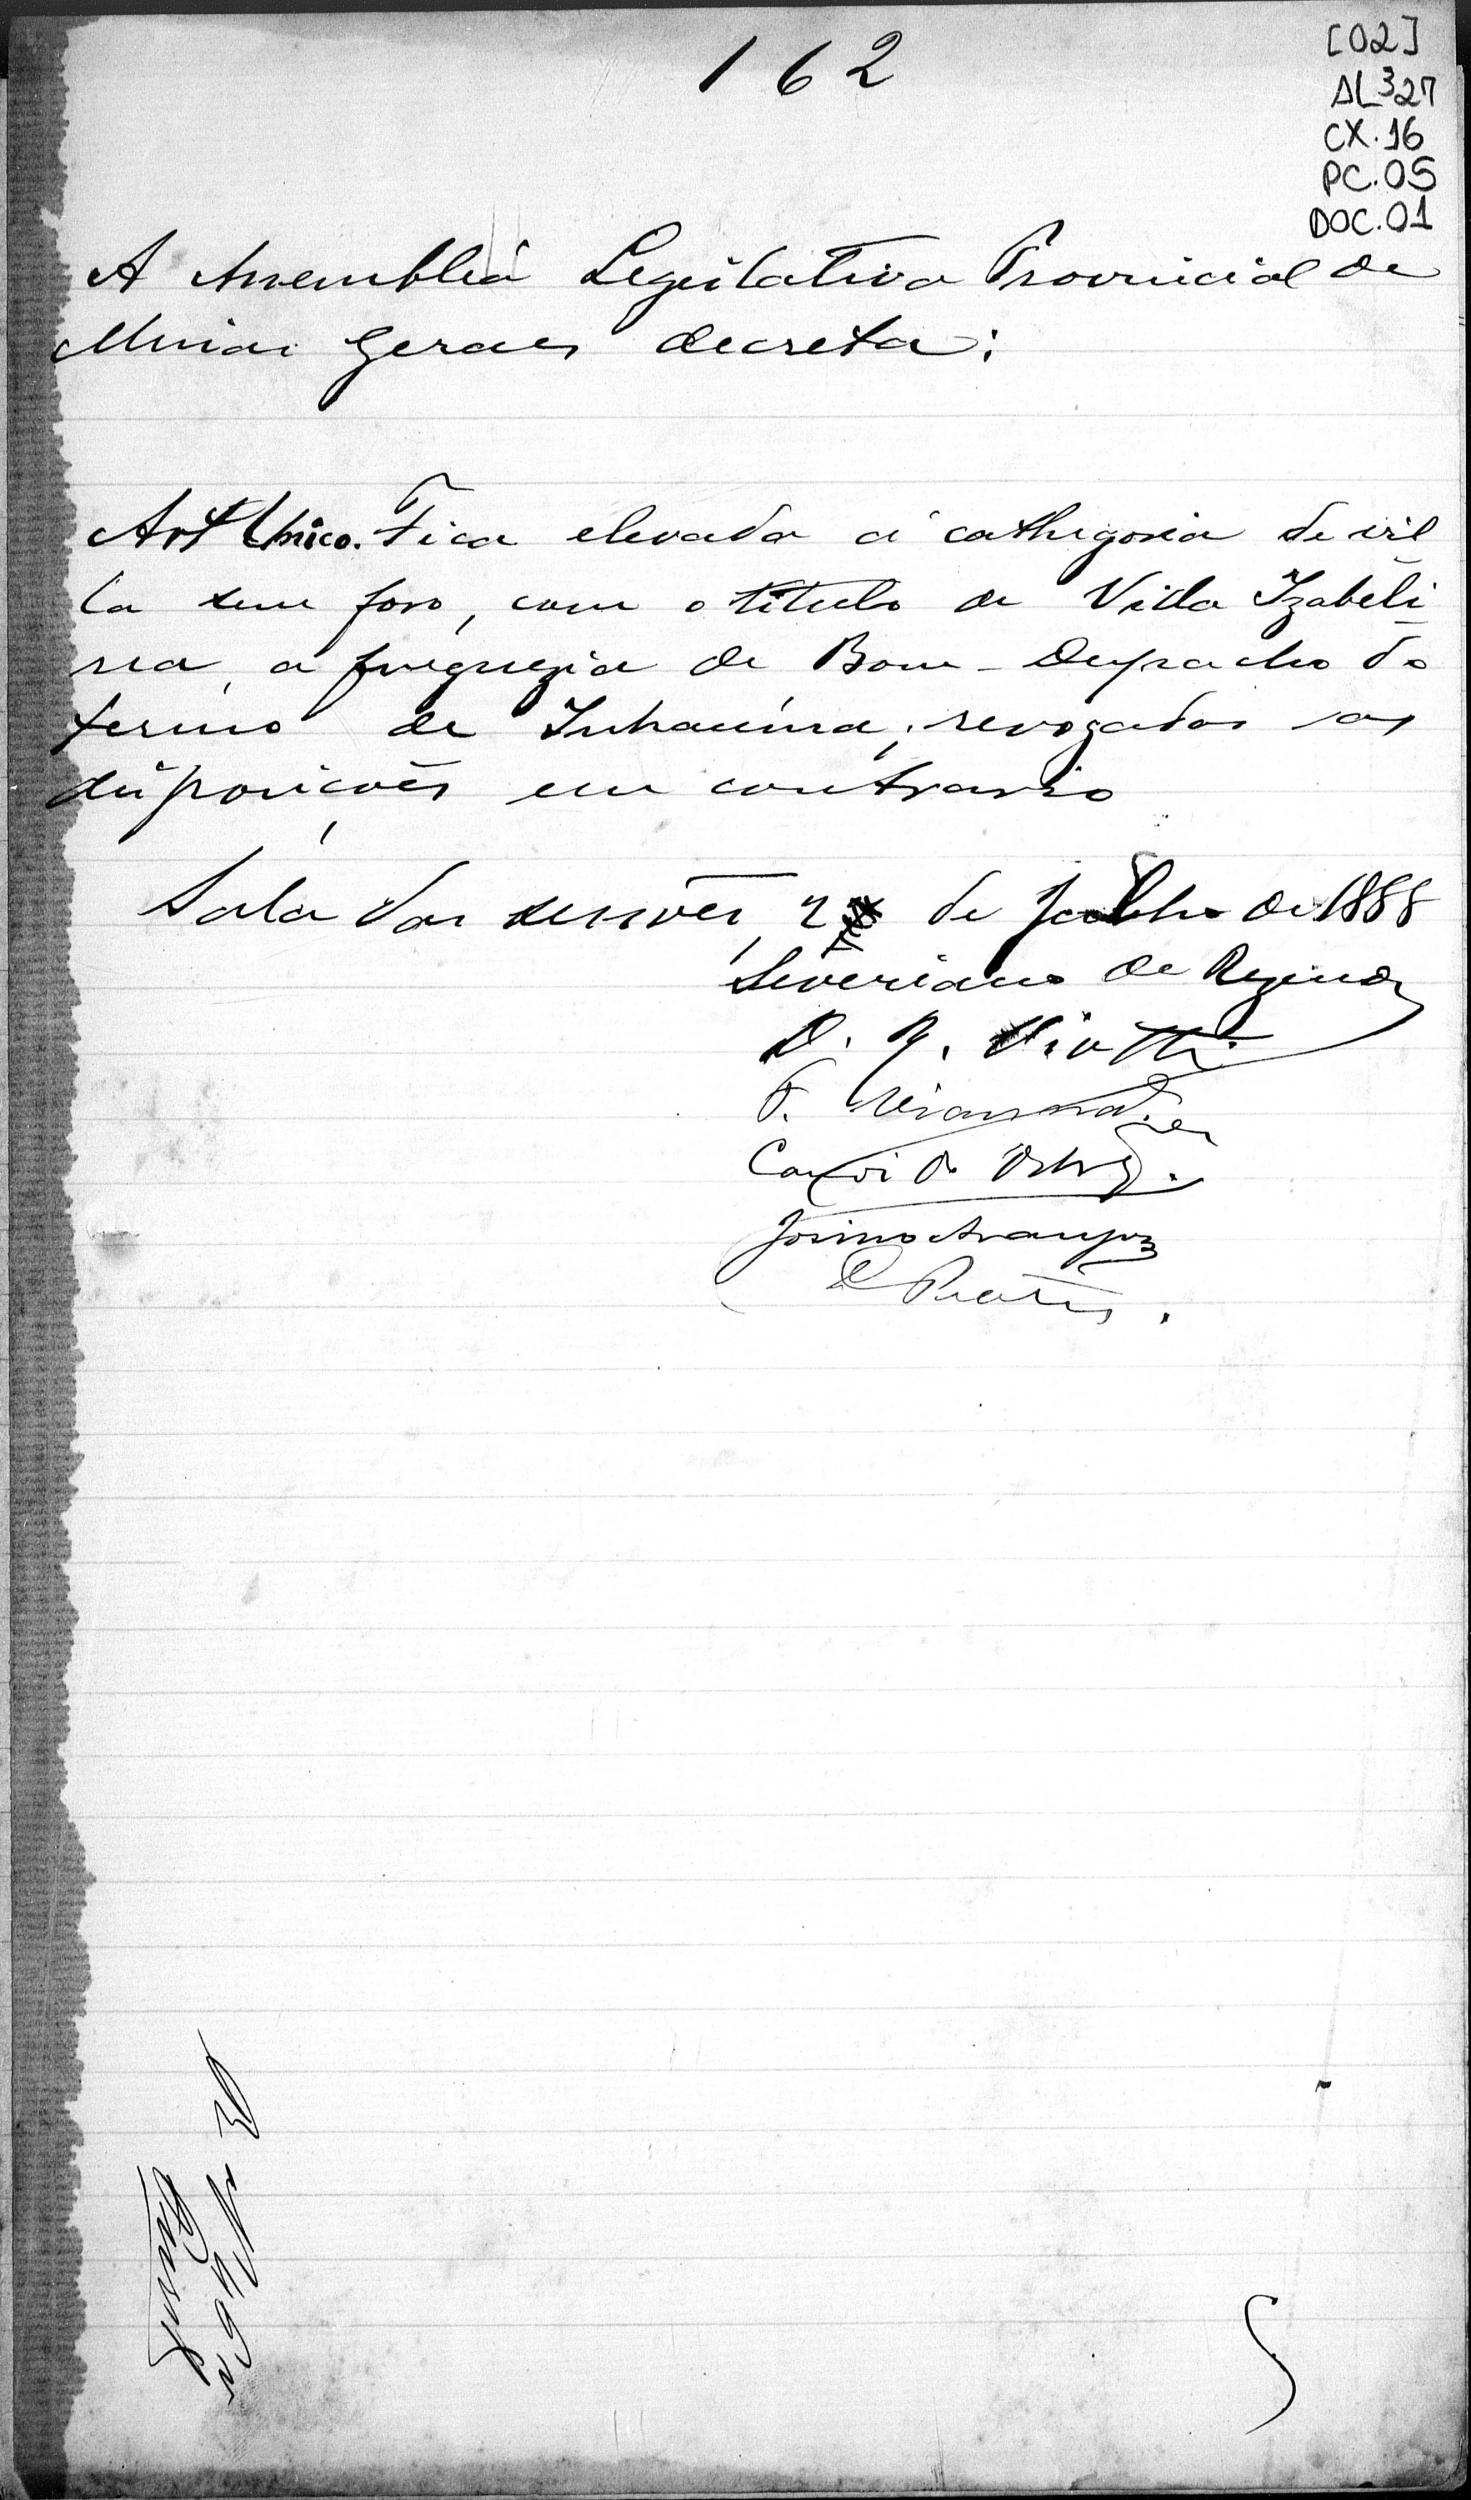 162
[02]
AL 327
CX.16
PC.05
DOC.01
A Assembléa Legislativa Provincial de
Minas Geraes decreta:
Art Unico. Fica elevada á cathegoria de vil
la sem foro, com o titulo de Villa Izabeli
na, a freguezia de Bom-Despacho do
termo de Inhaúma; revogadas as
disposições em contrario
Sala das sessões, 2 de Julho de 1888
Severiano de Rezende
D. R. Viotti
F.
Candido
Josino Araujo
Prates.